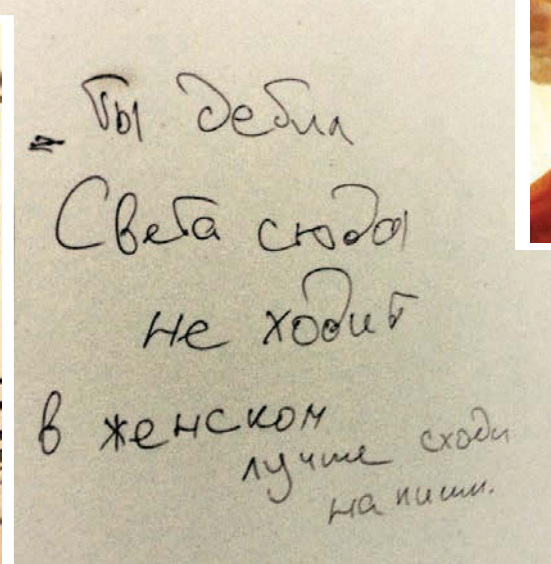 - Ты дебил
Света сюда
не ходит
в женском
лучше сходи
напиши.